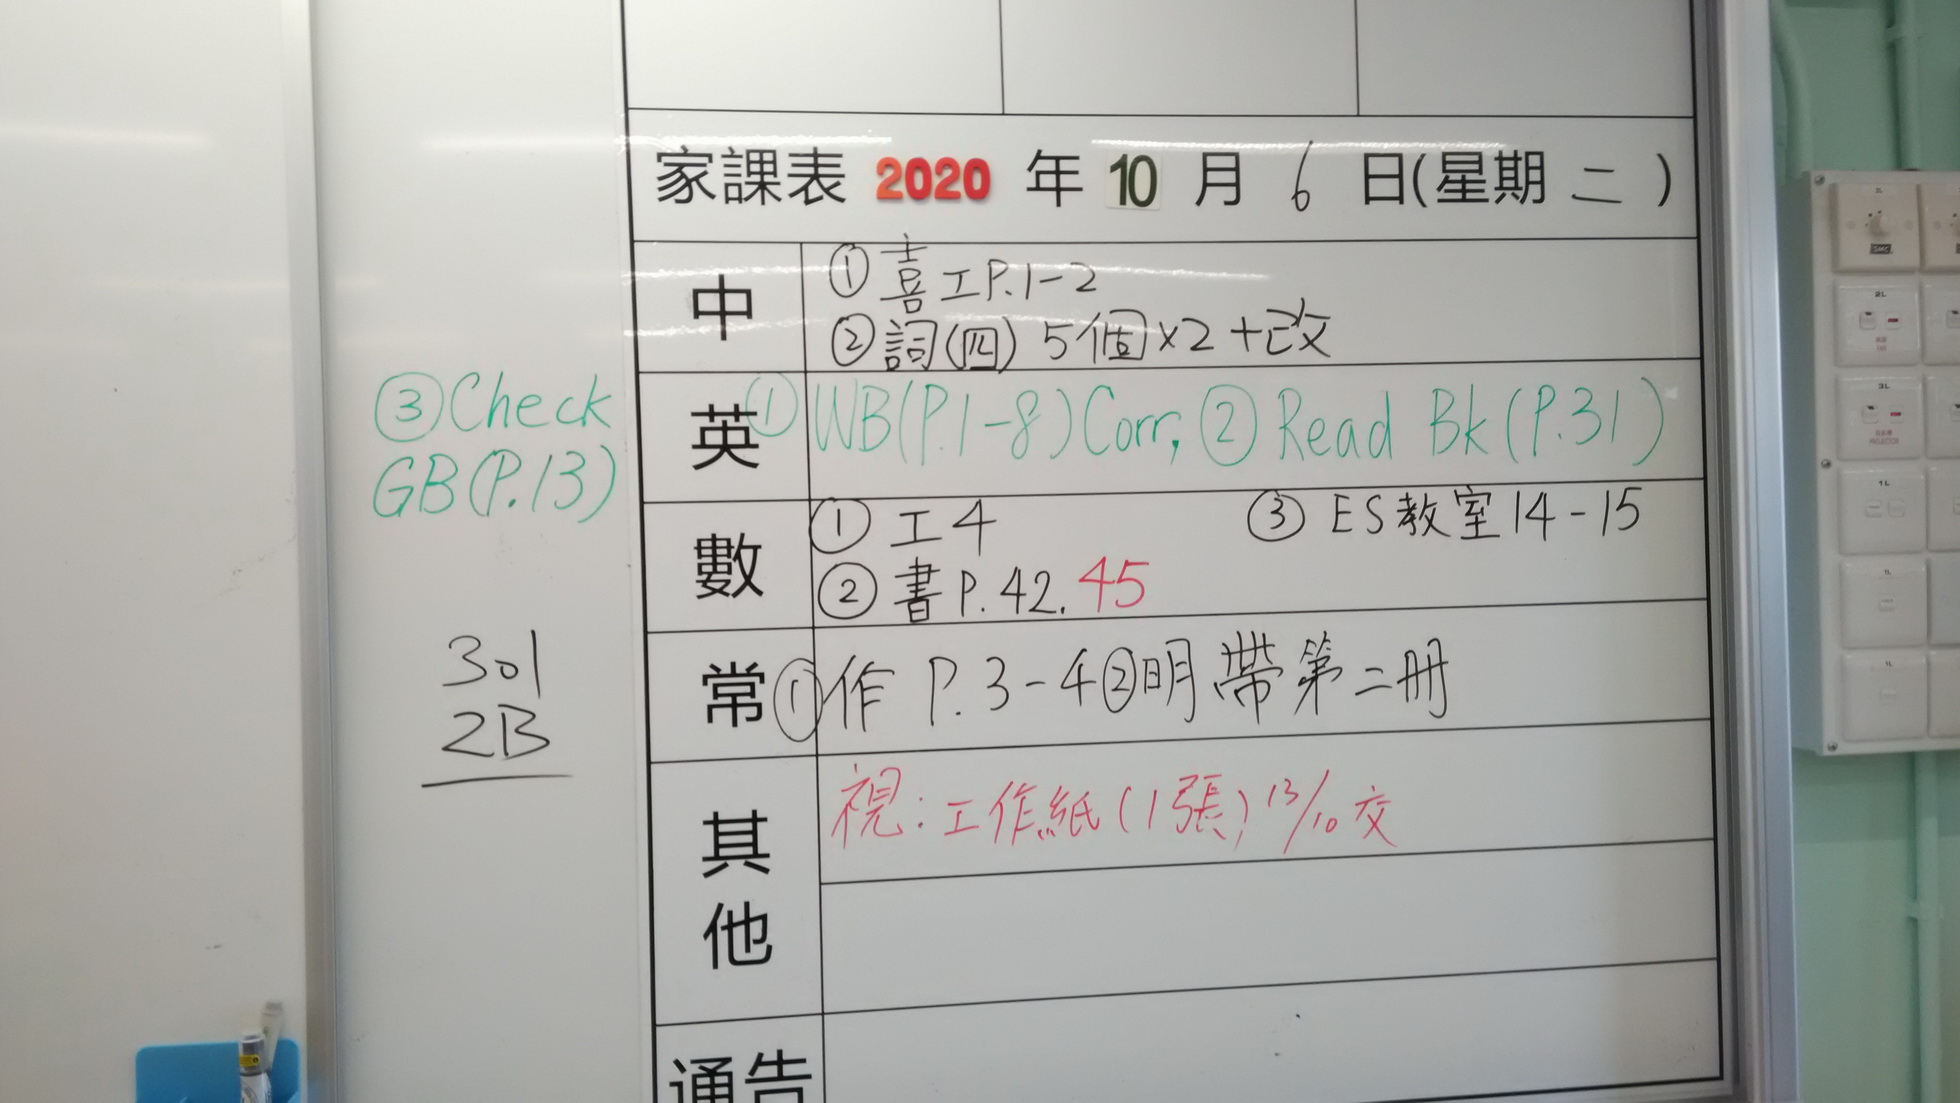 家課表 2020 年 10 月 6 日(星期 二 )
中
① 喜 工P.1-2
② 詞(四) 5個×2 +改
英
① WB(P.1-8) Corr, ② Read Bk (P.31)
③ Check
GB(P.13)
數
① 工4
② 書 P.42. 45
③ ES教室 14-15
常
① 作 P.3-4 ② 明帶第二冊
301
2B
其他
視: 工作紙 (1張) 13/10 交
通告